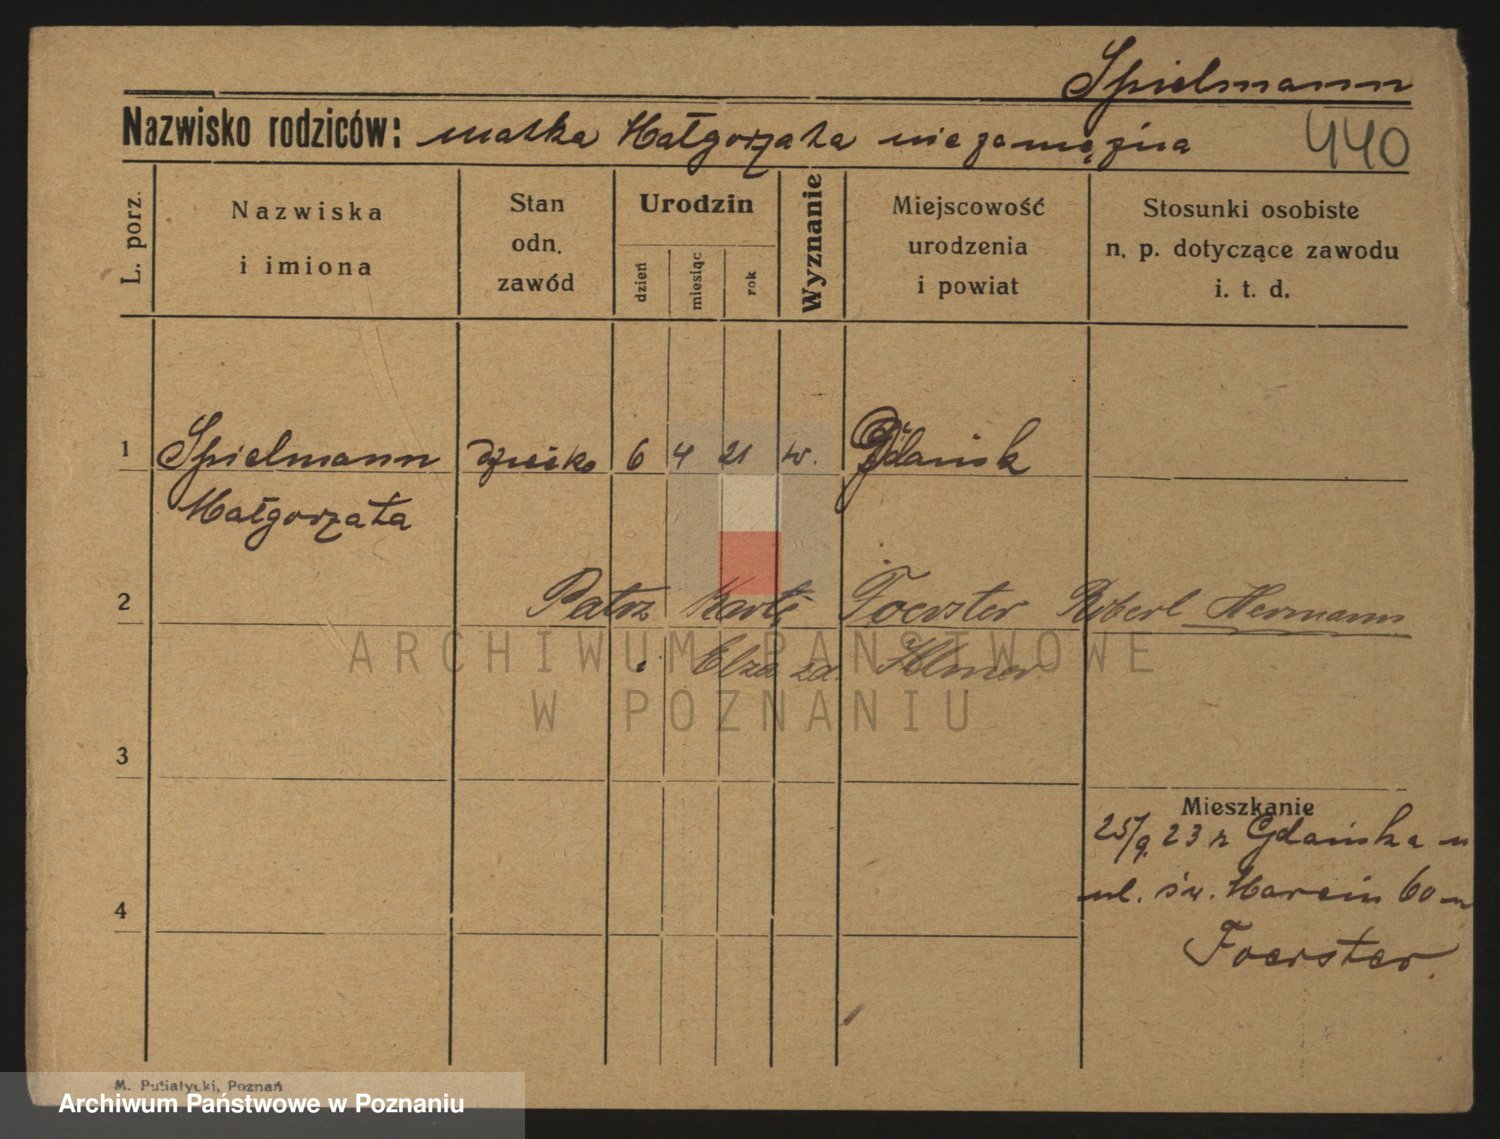 Spielmann
Nazwisko rodziców: matka Małgorzata niezamężna 440
L. porz.
Nazwiska
i imiona
Stan
odn.
zawód
Urodzin
dzień
miesiąc
rok
Wyznanie
Miejscowość
urodzenia
i powiat
Stosunki osobiste
n. p. dotyczące zawodu
i. t. d.
1 Spielmann dziecko 6 4 21 w. Gdańsk
Małgorzata
2 Patrz Kartę Foerster Robert Hermann
i Elza zd.
ARCHIWUM PAŃSTWOWE
W POZNANIU
3
Mieszkanie
25/9 23 z Gdańska n
ul. św. Marcin 60 u
4
Foerster.
M. Putiatycki, Poznań
Archiwum Państwowe w Poznaniu